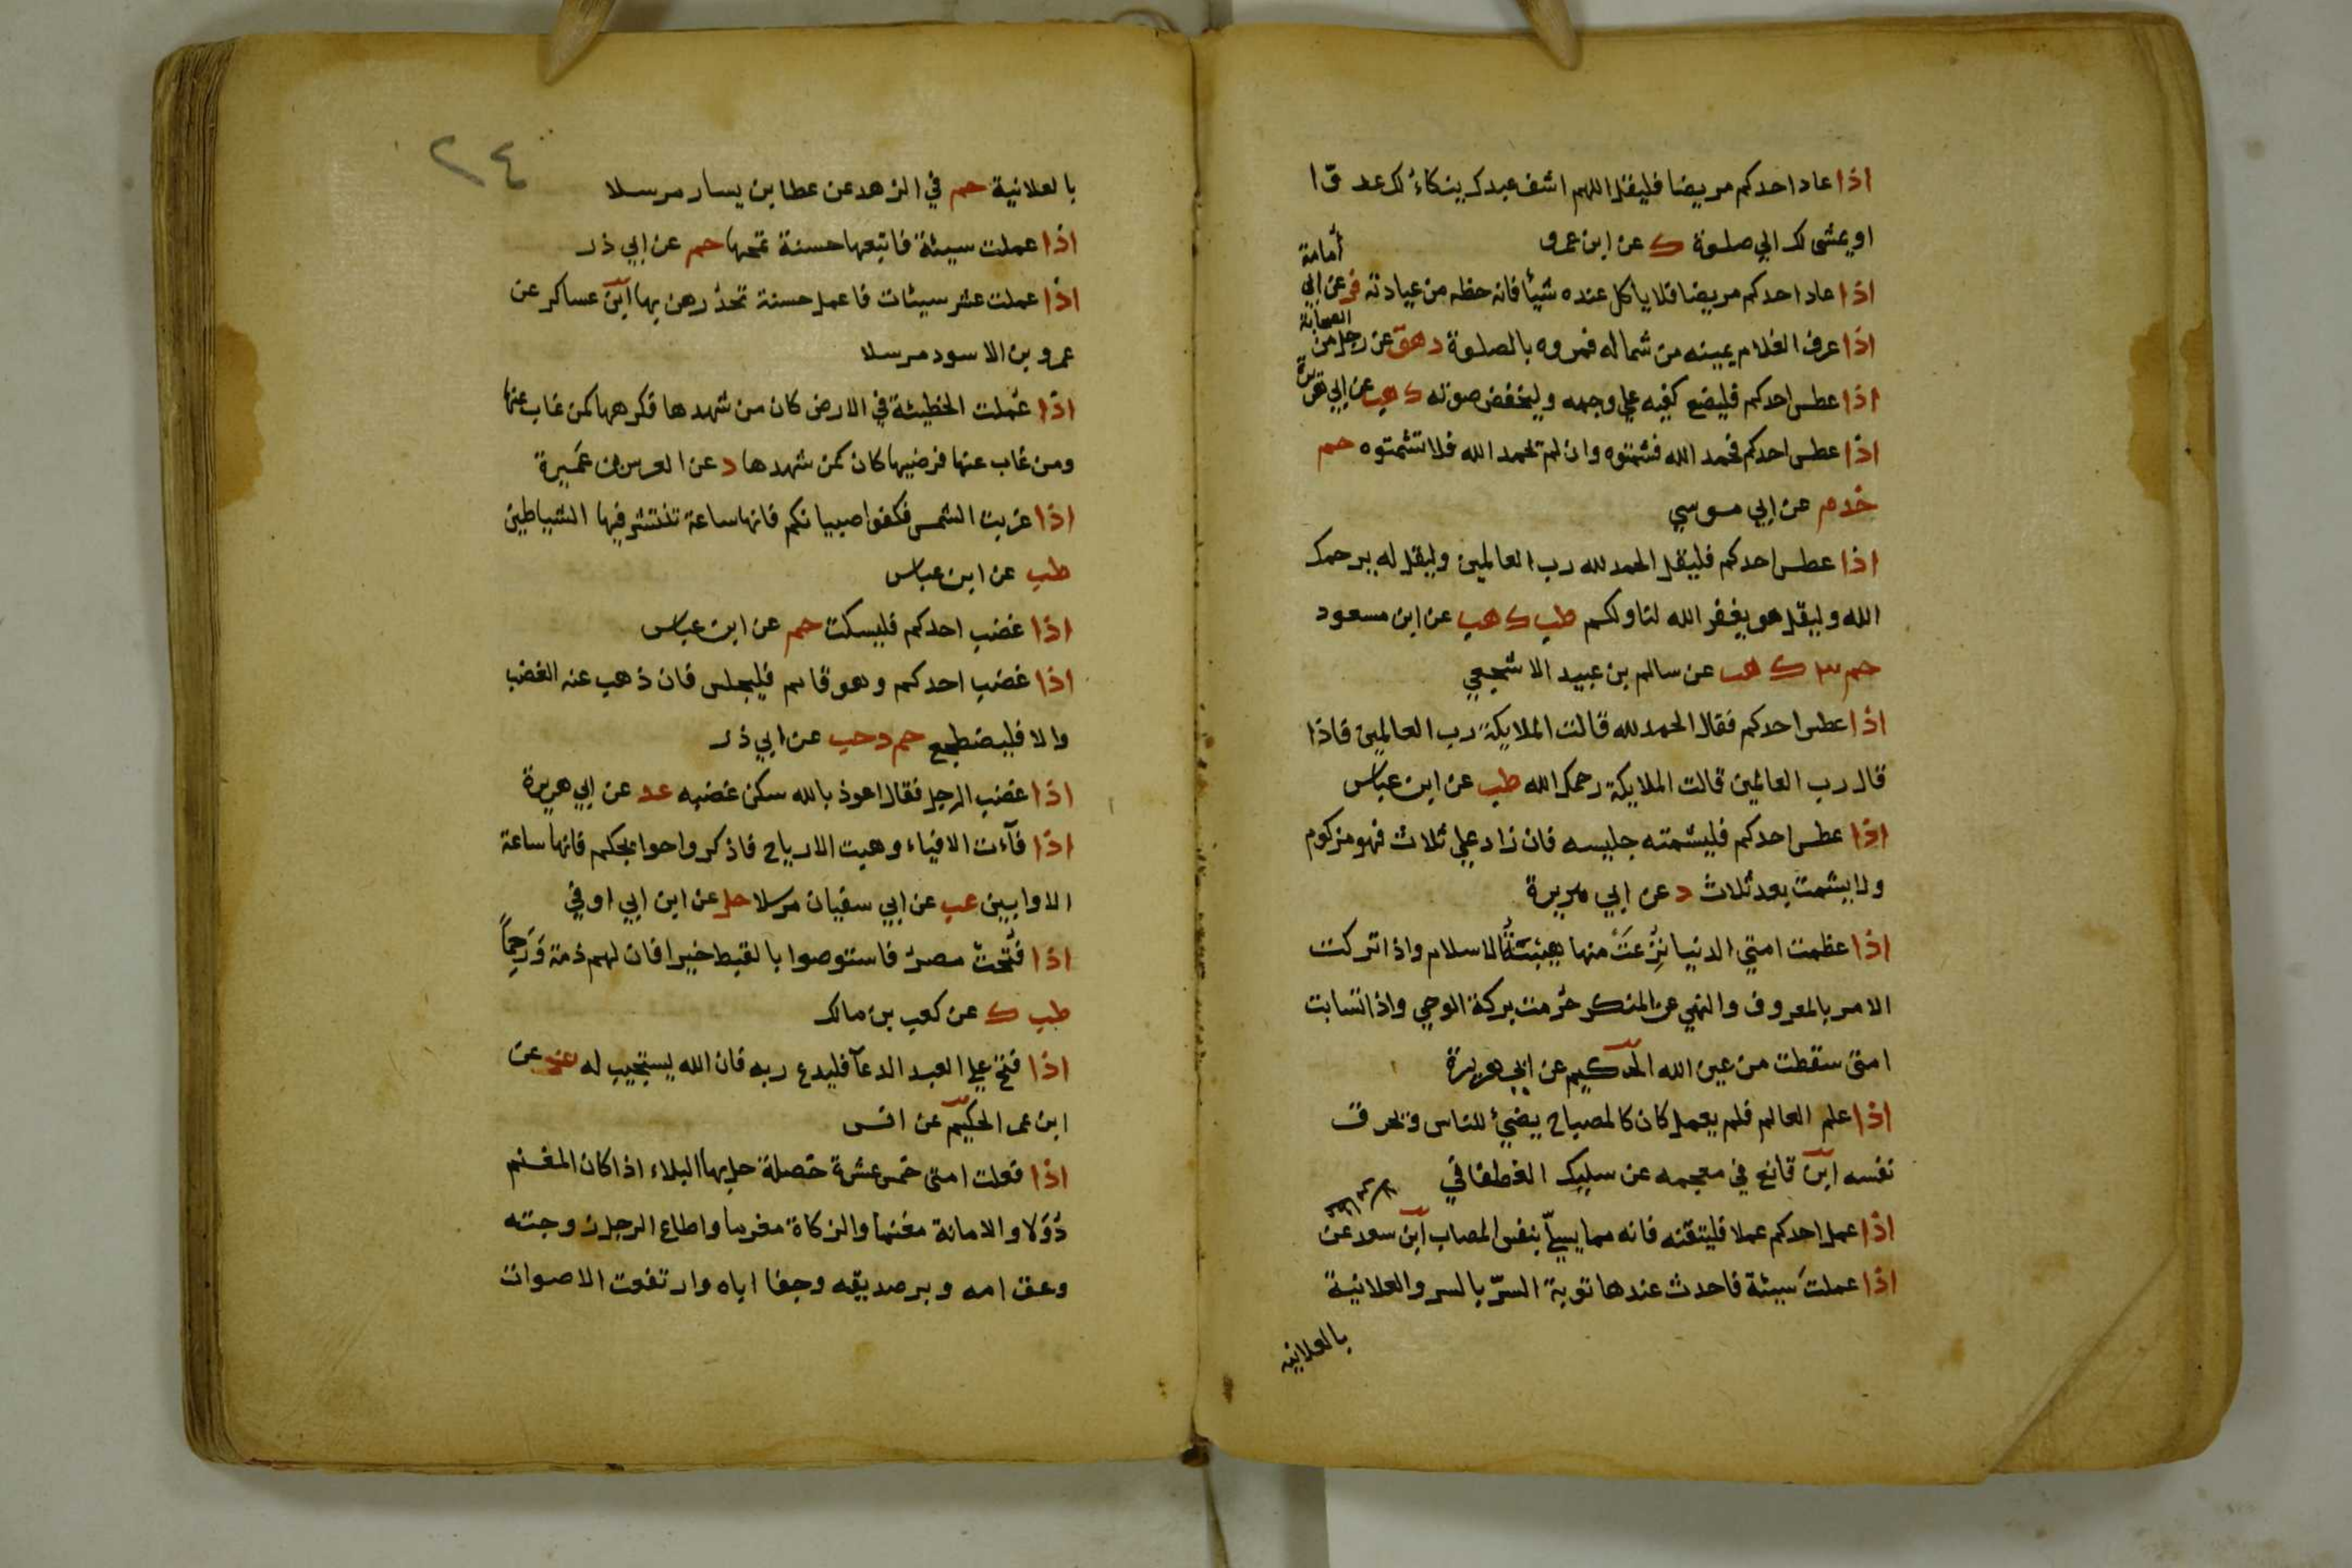 اذا عاد احدكم مريضا فليقل اللهم اشف عبدك ينكاء لك عدوّا
او يمشى لك الي صلوة ك عن ابن عمرو
اذا عاد احدكم مريضا فلا ياكل عنده شيئا فانه حظه من عيادته فر عن ابي
أمامة
اذا عرف الغلام يمينه من شماله فمروه بالصلوة د هق عن رجل من
الصحابة
اذا عطس احدكم فليضع كفيه علي وجهه وليخفض صوته ك هب عن ابي هريرة
اذا عطس احدكم فحمد الله فشمتوه وان لم تحمد الله فلا تشمتوه حم
خدم عن ابي موسي
اذا عطس احدكم فليقل الحمد لله رب العالمين وليقل له يرحمك
الله وليقل هو يغفر الله لنا ولكم طب ك هب عن ابن مسعود
حم ٣ ك هب عن سالم بن عبيد الاشجعي
اذا عطس احدكم فقال الحمد لله قالت الملايكة رب العالمين فاذا
قال رب العالمين قالت الملايكة رحمك الله طب عن ابن عباس
اذا عطس احدكم فليشمته جليسه فان زاد علي ثلاث فهو مزكوم
ولا يشمت بعد ثلاث د عن ابي هريرة
اذا عظمت امتي الدنيا نُزِعَتْ منها هيبَتُهُ الاسلام واذا تركت
الامر بالمعروف والنهي عن المنكر حُرمت بركة الوحي واذا تسابت
امتى سقطت من عين الله الحكيم عن ابي هريرة
اذا علم العالم فلم يعمل كان كالمصباح يضيئ للناس وتحرق
نفسه ابن قانع في معجمه عن سليك الغطفاني
اذا عمل احدكم عملا فليتقنه فانه مما يسلّ بنفس المصاب ابن سعد عن
اذا عملتَ سيئة فاحدث عندها توبة السرّ بالسر والعلانية
بالعلانيه
٢٤
بالعلانية حم في الزهد عن عطا بن يسار مرسلا
اذا عملت سيئة فاتبعها حسنة تمحها حم عن ابي ذر
اذا عملت عشر سيئات فاعمل حسنة تحدُرهن بها ابن عساكر عن
عمرو بن الاسود مرسلا
اذا عُملت الخطيئة في الارض كان من شهدها فكرهها كمن غاب عنها
ومن غاب عنها فرضيها كان كمن شهدها د عن العرس بن عَمِيرة
اذا غربت الشمس فكفوا صبيانكم فانها ساعة تنتشر فيها الشياطين
طب عن ابن عباس
اذا غضب احدكم فليسكت حم عن ابن عباس
اذا غضب احدكم وهو قايم فليجلس فان ذهب عنه الغضب
والا فليضطجع حم د حب عن ابي ذر
اذا غضب الرجل فقال اعوذ بالله سكن غضبه عد عن ابي هريرة
اذا فآءت الافياء وهبت الارياح فاذكروا حوايجكم فانها ساعة
الاوابين عب عن ابي سفيان مرسلا حل عن ابن ابي اوفي
اذا فُتحتْ مصرُ فاستوصوا بالقبط خيرا فان لهم ذمة وَرَحِماً
طب ك عن كعب بن مالك
اذا فتح علي العبد الدعآ فليدع ربه فان الله يستجيب له عن
ابن عمر الحكيم عن انس
اذا فعلت امتى خمس عشرة خصلة حل بها البلاء اذا كان المغنم
دُوَلا والامانة مغنما والزكاة مغرما واطاع الرجل زوجته
وعق امه وبر صديقه وجفا اباه وارتفعت الاصوات